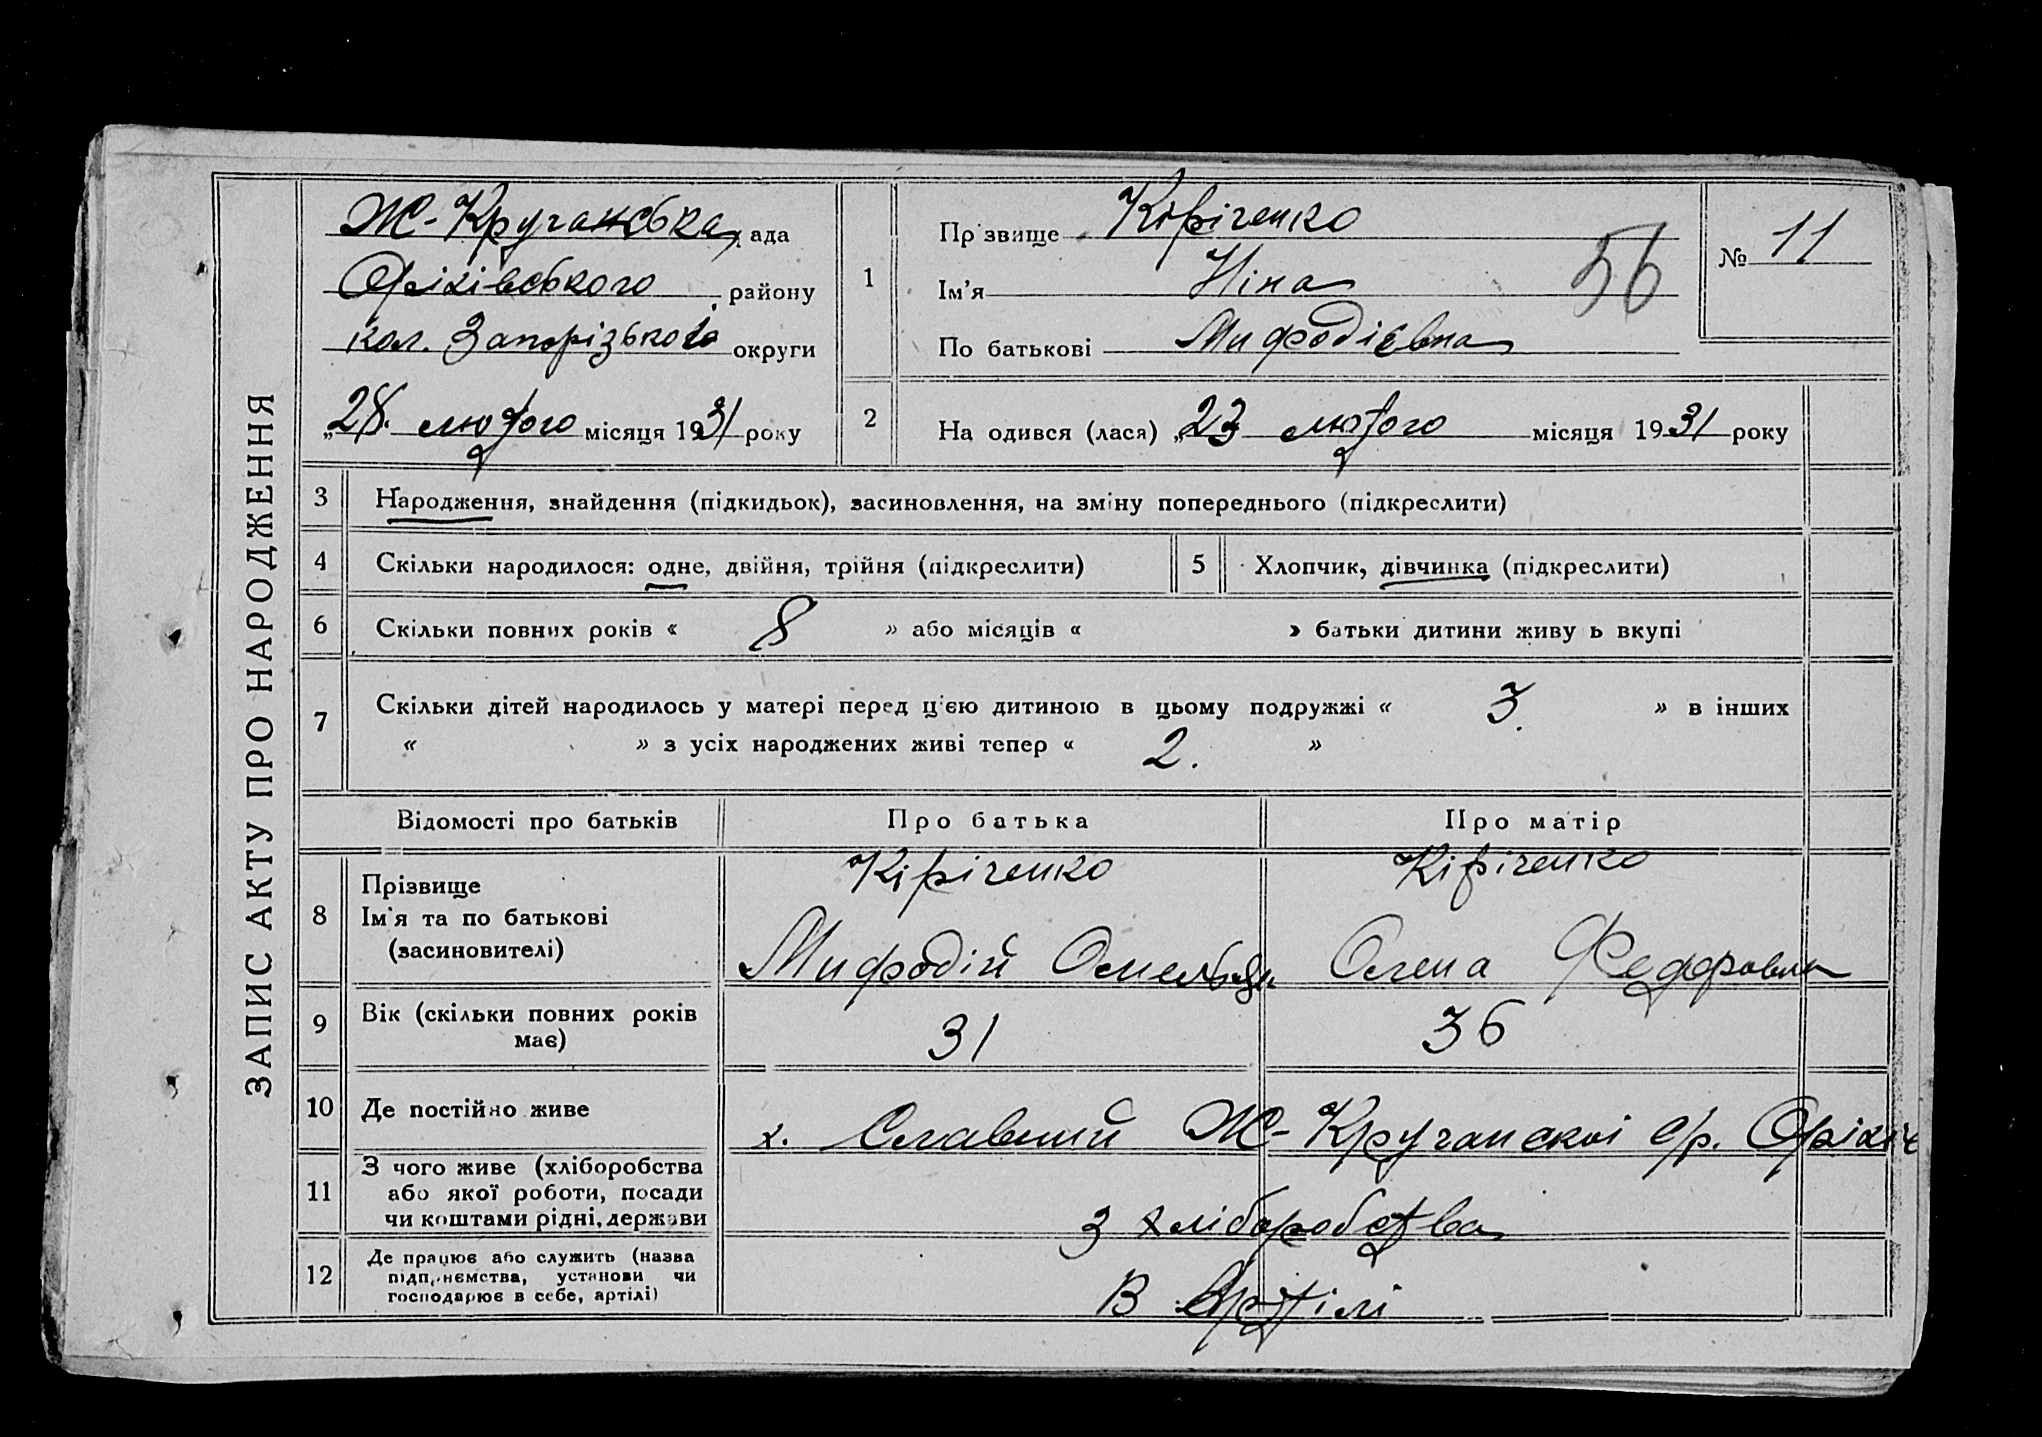 ЗАПИС АКТУ ПРО НАРОДЖЕННЯ
Ж-Кручанська рада
Оріхівського району
кол. Запорізького округи
„28. лютого місяця 1931 року
1
Прізвище Кіріченко
Ім'я Ніна
По батькові Мифодієвна
56
№ 11
2
На одився (лася) „23 лютого місяця 1931 року
3 Народження, знайдення (підкидьок), засиновлення, на зміну попереднього (підкреслити)
4 Скільки народилося: одне, двійня, трійня (підкреслити)
5 Хлопчик, дівчинка (підкреслити)
6 Скільки повних років « 8 » або місяців « » батьки дитини живу ь вкупі
7 Скільки дітей народилось у матері перед ц'єю дитиною в цьому подружжі « 3. » в інших
« » з усіх народжених живі тепер « 2. »
Відомості про батьків Про батька Про матір
8 Прізвище
Ім'я та по батькові
(засиновителі)
Кіріченко
Мифодій
Кіріченко
Олена Федоровна
9 Вік (скільки повних років
має)
31 36
10 Де постійно живе
х. Славний Ж-Кручанскої с/р. Оріхів
11 З чого живе (хліборобства
або якої роботи, посади
чи коштами рідні, держави
З хліборобства
12 Де працює або служить (назва
підприємства, установи чи
господарює в себе, артілі)
В Артілі